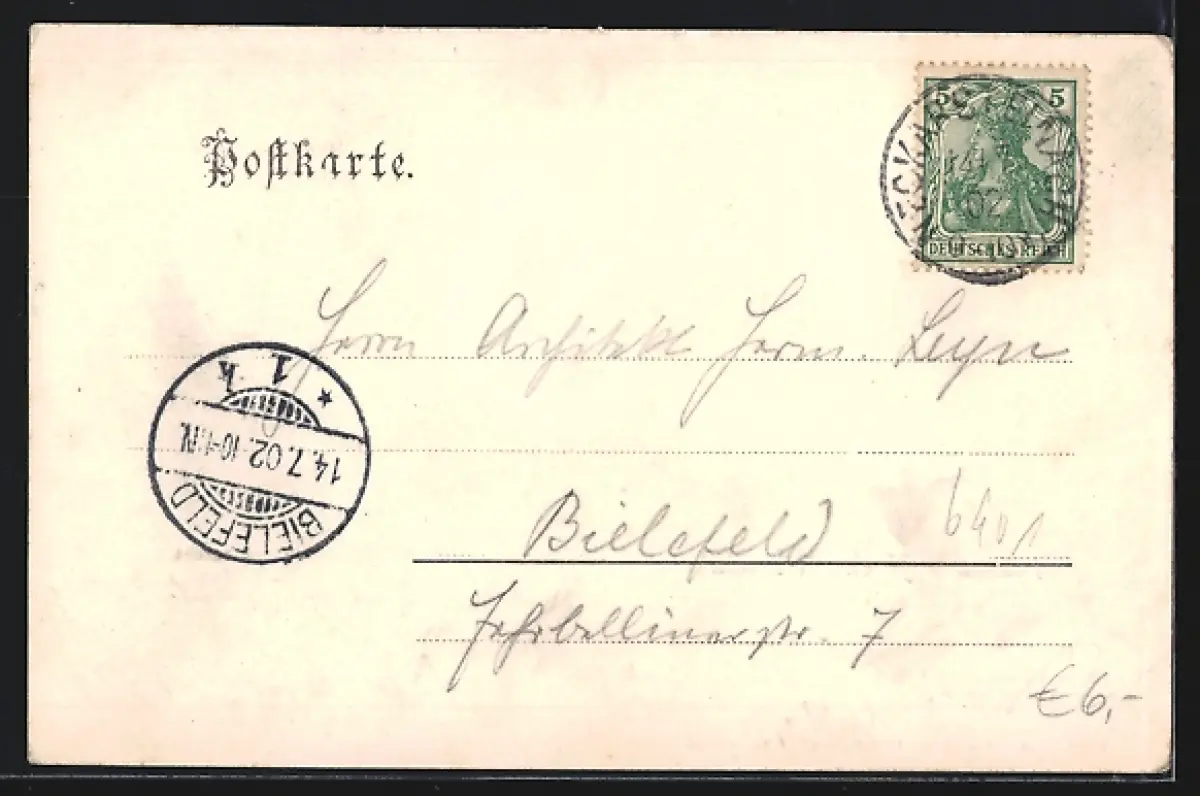 Postkarte.
5 5
NECKARSTEINACH
14
02
DEUTSCHES REICH
Herrn Architekt Herm. Leyn
* 1 k
14.7.02. 10-11N.
BIELEFELD
Bielefeld
6401
Fehrbellinerstr. 7
€6,-